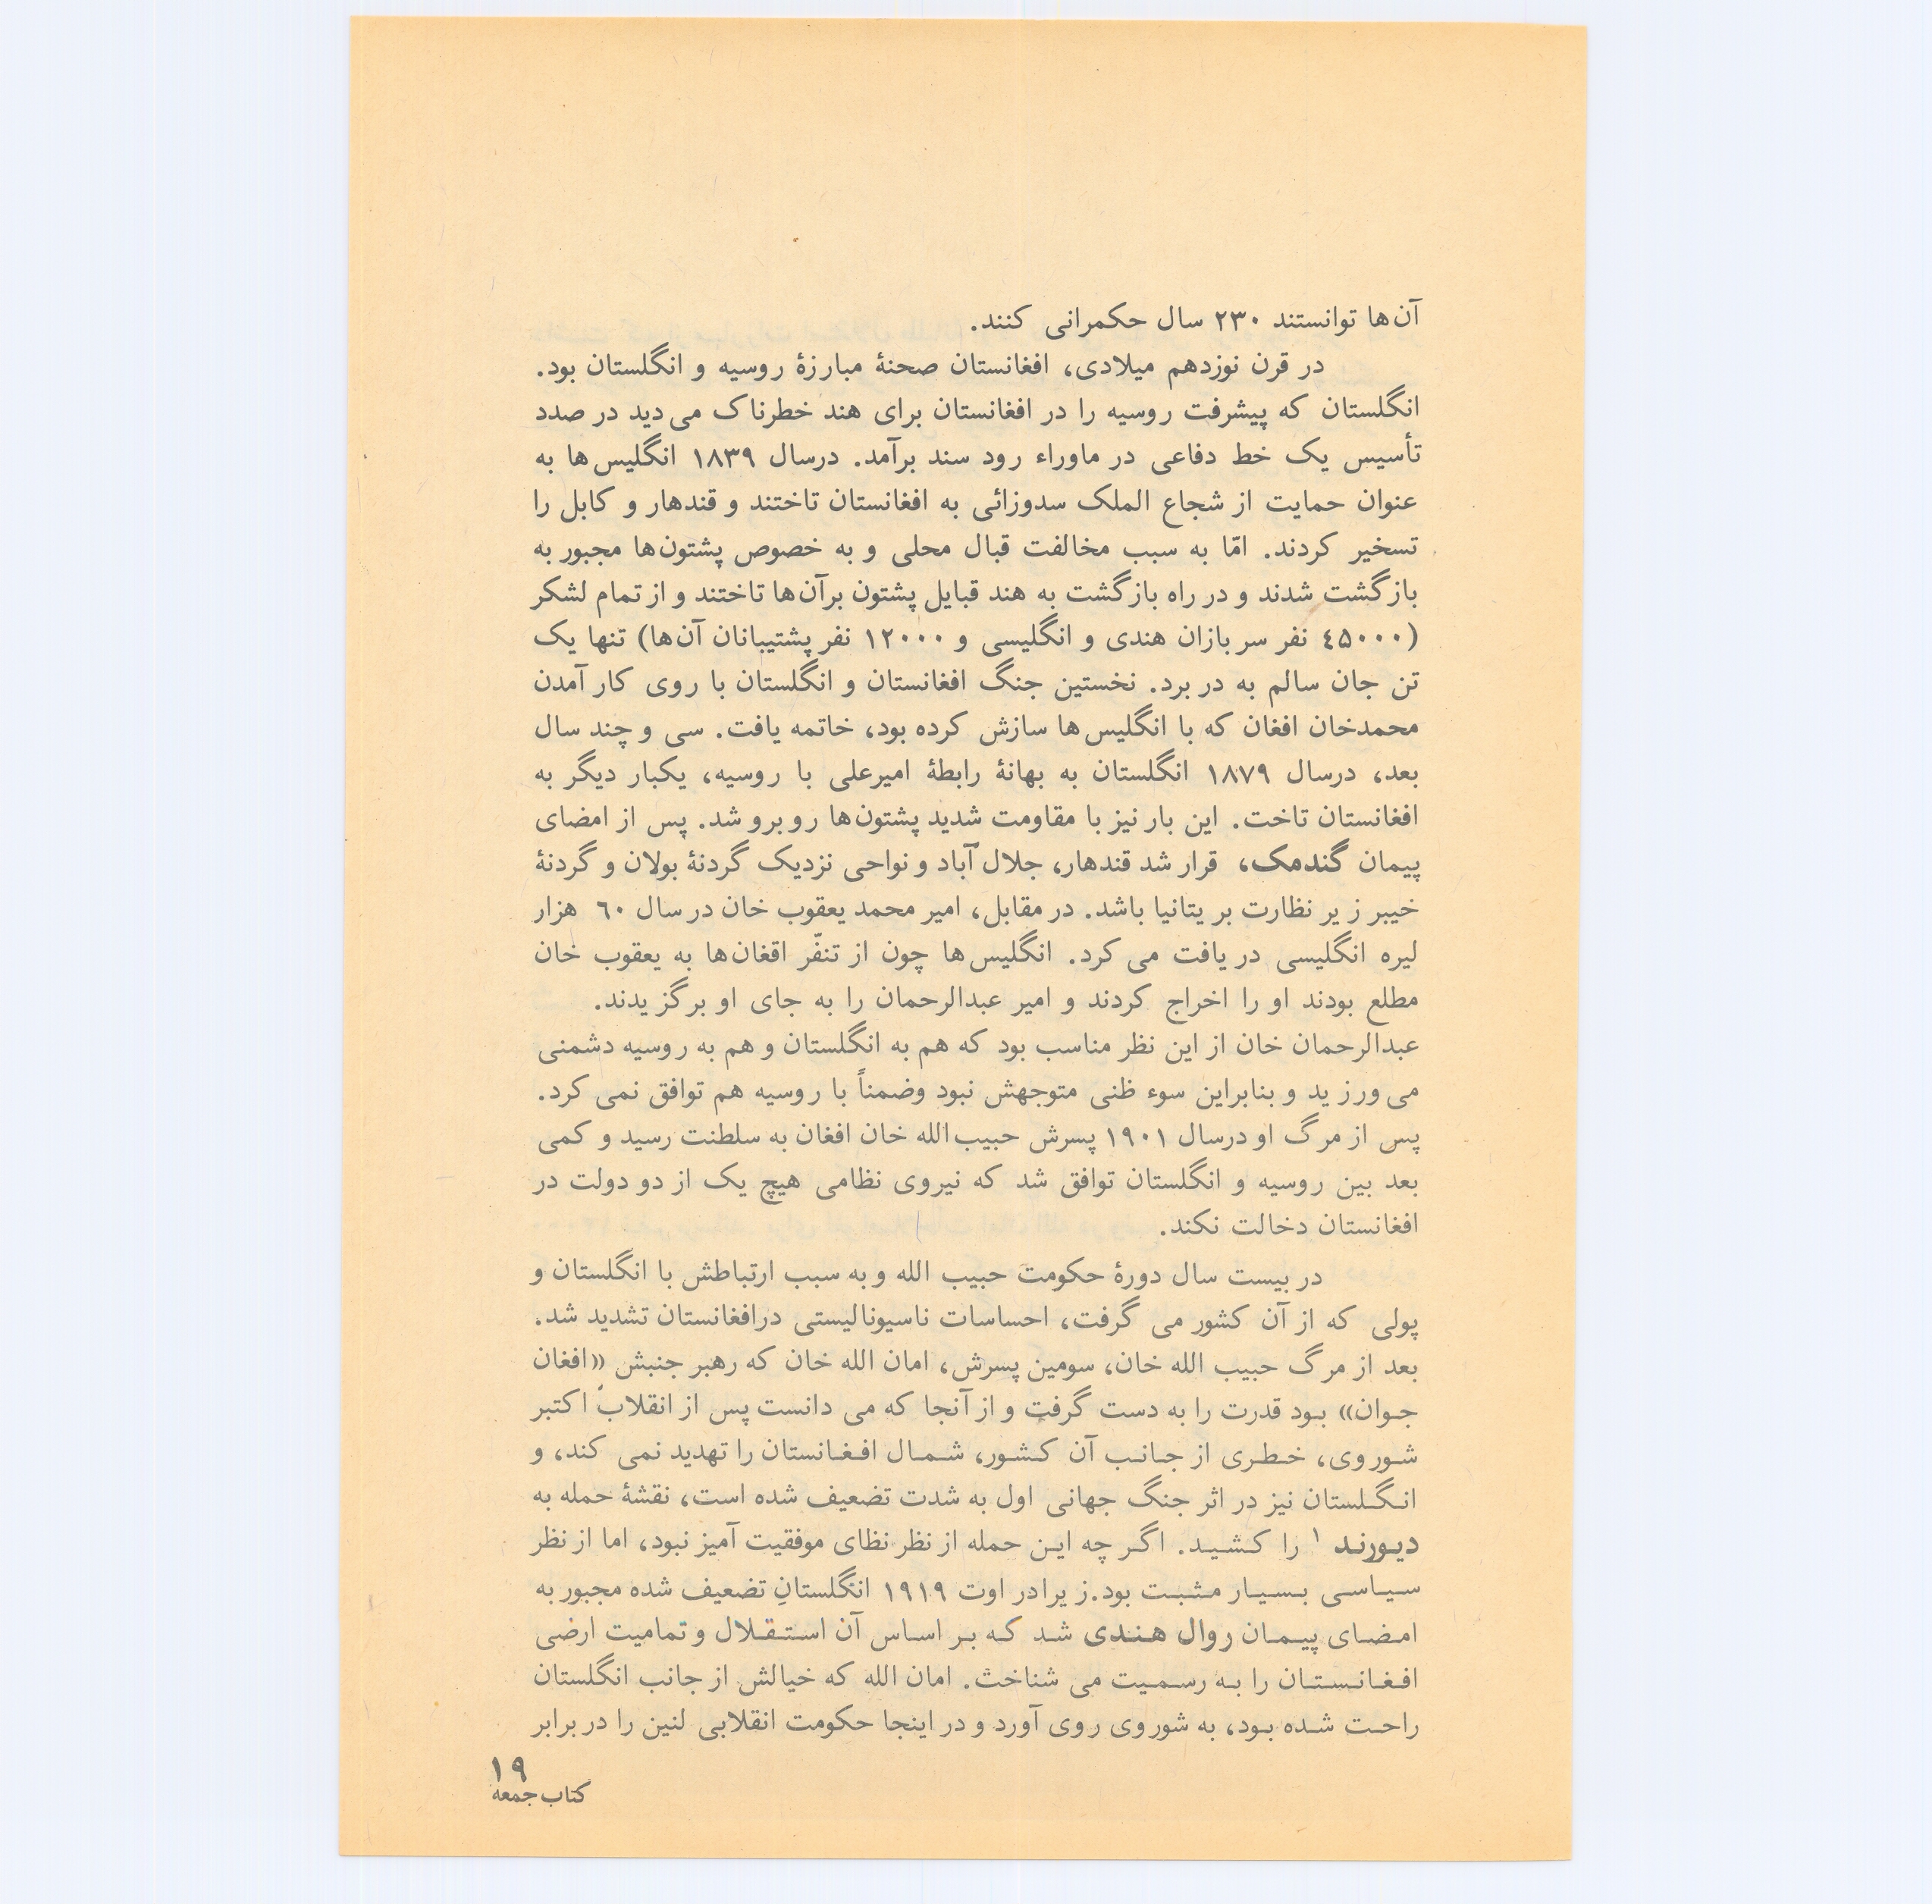 آن‌ها توانستند ۲۳۰ سال حکمرانی کنند.
در قرن نوزدهم میلادی، افغانستان صحنهٔ مبارزهٔ روسیه و انگلستان بود.
انگلستان که پیشرفت روسیه را در افغانستان برای هند خطرناک می‌دید در صدد
تأسیس یک خط دفاعی در ماوراء رود سند برآمد. درسال ۱۸۳۹ انگلیس‌ها به
عنوان حمایت از شجاع الملک سدوزائی به افغانستان تاختند و قندهار و کابل را
تسخیر کردند. امّا به سبب مخالفت قبال محلی و به خصوص پشتون‌ها مجبور به
بازگشت شدند و در راه بازگشت به هند قبایل پشتون برآن‌ها تاختند و از تمام لشکر
(۴۵۰۰۰ نفر سربازان هندی و انگلیسی و ۱۲۰۰۰ نفر پشتیبانان آن‌ها) تنها یک
تن جان سالم به در برد. نخستین جنگ افغانستان و انگلستان با روی کار آمدن
محمدخان افغان که با انگلیس‌ها سازش کرده بود، خاتمه یافت. سی و چند سال
بعد، درسال ۱۸۷۹ انگلستان به بهانهٔ رابطهٔ امیرعلی با روسیه، یکبار دیگر به
افغانستان تاخت. این بار نیز با مقاومت شدید پشتون‌ها روبرو شد. پس از امضای
پیمان گندمک، قرار شد قندهار، جلال آباد و نواحی نزدیک گردنهٔ بولان و گردنهٔ
خیبر زیر نظارت بریتانیا باشد. در مقابل، امیر محمد یعقوب خان در سال ۶۰ هزار
لیره انگلیسی دریافت می کرد. انگلیس‌ها چون از تنفّر اقغان‌ها به یعقوب خان
مطلع بودند او را اخراج کردند و امیر عبدالرحمان را به جای او برگزیدند.
عبدالرحمان خان از این نظر مناسب بود که هم به انگلستان و هم به روسیه دشمنی
می ورزید و بنابراین سوء ظنی متوجهش نبود وضمناً با روسیه هم توافق نمی کرد.
پس از مرگ او درسال ۱۹۰۱ پسرش حبیب‌الله خان افغان به سلطنت رسید و کمی
بعد بین روسیه و انگلستان توافق شد که نیروی نظامی هیچ یک از دو دولت در
افغانستان دخالت نکند.
در بیست سال دورهٔ حکومت حبیب الله و به سبب ارتباطش با انگلستان و
پولی که از آن کشور می گرفت، احساسات ناسیونالیستی درافغانستان تشدید شد.
بعد از مرگ حبیب الله خان، سومین پسرش، امان الله خان که رهبر جنبش «افغان
جوان» بود قدرت را به دست گرفت و از آنجا که می دانست پس از انقلاب اکتبر
شوروی، خطری از جانب آن کشور، شمال افغانستان را تهدید نمی کند، و
انگلستان نیز در اثر جنگ جهانی اول به شدت تضعیف شده است، نقشهٔ حمله به
دیورند ۱ را کشید. اگر چه این حمله از نظر نظای موفقیت آمیز نبود، اما از نظر
سیاسی بسیار مثبت بود.زیرا در اوت ۱۹۱۹ انگلستانِ تضعیف شده مجبور به
امضای پیمان روال هندی شد که بر اساس آن استقلال و تمامیت ارضی
افغانستان را به رسمیت می شناخت. امان الله که خیالش از جانب انگلستان
راحت شده بود، به شوروی روی آورد و در اینجا حکومت انقلابی لنین را در برابر
۱۹
کتاب جمعه